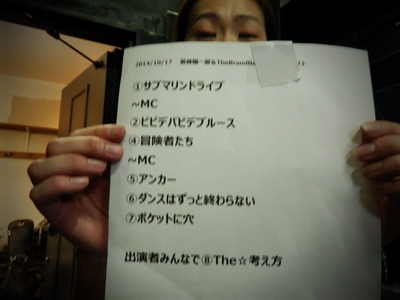 2014/10/17
①サブマリンドライブ
~MC
②ビビデバビデブルース
④冒険者たち
~MC
⑤アンカー
⑥ダンスはずっと終わらない
⑦ポケットに穴
出演者みんなで⑧The☆考え方